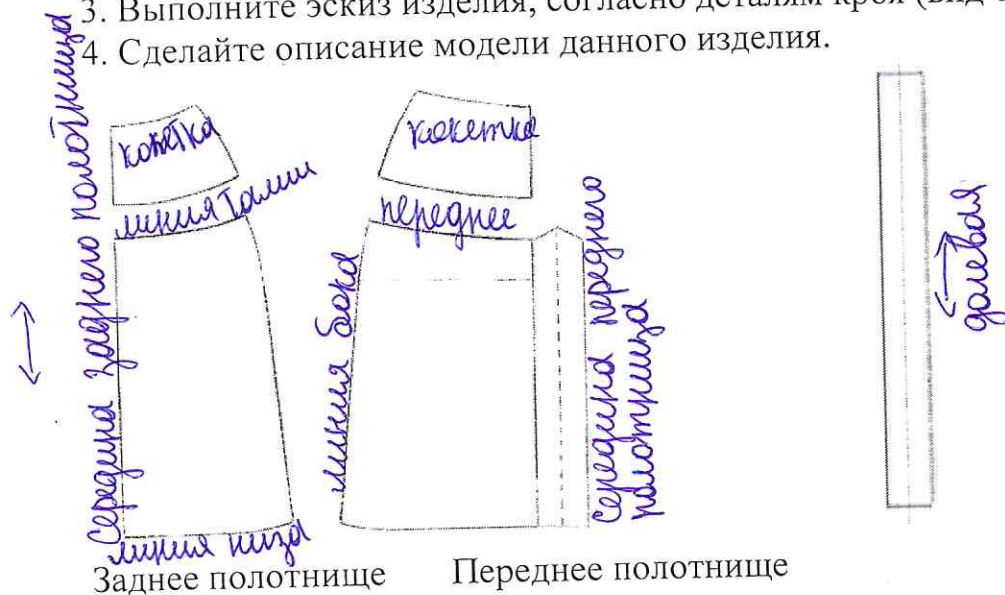 3. Выполните эскиз изделия, согласно деталям кроя (вид
4. Сделайте описание модели данного изделия.
Середина заднего полотнища
кокетка
линия талии
линия низа
кокетка
переднее
линия бока
середина переднего
полотнища
долевая
Заднее полотнище
Переднее полотнище